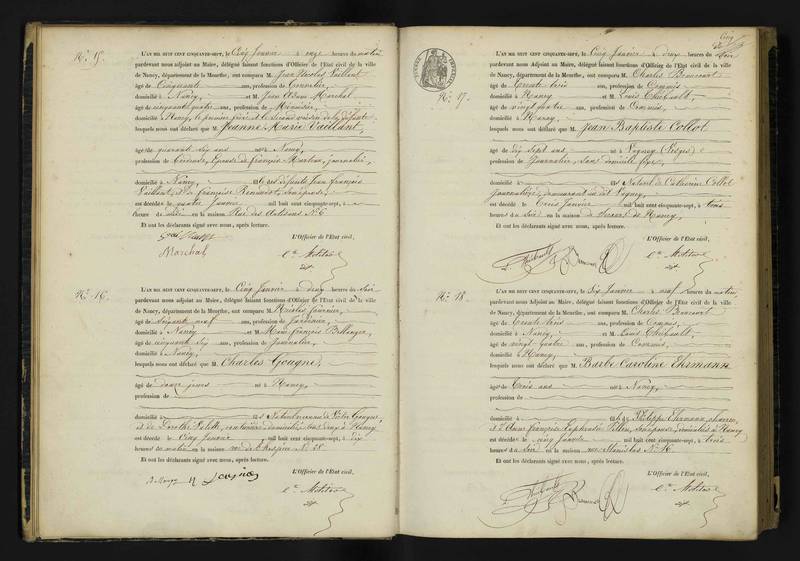 N.º 15.
L'AN MIL HUIT CENT CINQUANTE-SEPT, le Cinq Janvier à onze heures du matin
pardevant nous adjoint au Maire, délégué faisant fonctions d'Officier de l'Etat civil de la ville
de Nancy, département de la Meurthe, ont comparu M. Jean Nicolas Vaillant
âgé de Cinquante ans, profession de
domicilié à Nancy, et M. Jean Marchal
âgé de cinquante quatre ans, profession de Menuisier,
domicilié à Nancy, le premier frère et le second voisin de la défunte
lesquels nous ont déclaré que M. Jeanne Marie Vaillant,
âgé de quarante six ans né à Nancy,
profession de Couturière, Epouse de François Marton, journalier,
domicilié à Nancy, fille des défunts Jean François
Vaillant, et de Françoise Renault, son épouse,
est décédé le quatre Janvier mil huit cent cinquante-sept, à
heure de midi en la maison Rue des Artisans N.º 6
Et ont les déclarants signé avec nous, après lecture.
L'Officier de l'Etat civil,
Marchal
N.º 16.
L'AN MIL HUIT CENT CINQUANTE-SEPT, le Cinq Janvier à deux heures du Soir
pardevant nous adjoint au Maire, délégué faisant fonctions d'Officier de l'Etat civil de la ville
de Nancy, département de la Meurthe, ont comparu M. Nicolas
âgé de Soixante neuf ans, profession de Jardinier,
domicilié à Nancy et M. François
âgé de cinquante six ans, profession de Journalier,
domicilié à Nancy,
lesquels nous ont déclaré que M. Charles Gougné,
âgé de douze jours né à Nancy,
profession de
domicilié à fils Naturel reconnu de Victor Gougné
et de domiciliés tous deux à Nancy
est décédé le Cinq Janvier mil huit cent cinquante-sept, à dix
heures du matin en la maison rue de l'hospice N.º 28
Et ont les déclarants signé avec nous, après lecture.
L'Officier de l'Etat civil,
Cinq
N.º 17.
L'AN MIL HUIT CENT CINQUANTE-SEPT, le Cinq Janvier à deux heures du Soir
pardevant nous adjoint au Maire, délégué faisant fonctions d'Officier de l'Etat civil de la ville
de Nancy, département de la Meurthe, ont comparu M. Charles
âgé de trente trois ans, profession de Commis,
domicilié à Nancy et M. Louis Thiébault,
âgé de vingt quatre ans, profession de Commis,
domicilié à Nancy,
lesquels nous ont déclaré que M. Jean Baptiste Collot
âgé de dix sept ans né à Vagney (Vosges)
profession de Journalier, sans domicile fixe,
domicilié à fils Naturel de Catherine Collot
Journalière, demeurant au dit Vagney,
est décédé le Trois Janvier mil huit cent cinquante-sept, à trois
heures du soir en la maison de Secours de Nancy,
Et ont les déclarants signé avec nous, après lecture.
L'Officier de l'Etat civil,
N.º 18.
L'AN MIL HUIT CENT CINQUANTE-SEPT, le Six Janvier à neuf heures du matin
pardevant nous adjoint au Maire, délégué faisant fonctions d'Officier de l'Etat civil de la ville
de Nancy, département de la Meurthe, ont comparu M. Charles
âgé de trente trois ans, profession de Commis,
domicilié à Nancy, et M. Louis Thiébault,
âgé de vingt quatre ans, profession de Commis,
domicilié à Nancy,
lesquels nous ont déclaré que M. Barbe Caroline Ehrmann
âgé de trois ans né à Nancy,
profession de
domicilié à fille de Philippe Ehrmann,
et d'Anne Françoise son épouse, domiciliés à Nancy
est décédé le cinq Janvier mil huit cent cinquante-sept, à trois
heures du soir en la maison rue Stanislas N.º 16.
Et ont les déclarants signé avec nous, après lecture.
L'Officier de l'Etat civil,